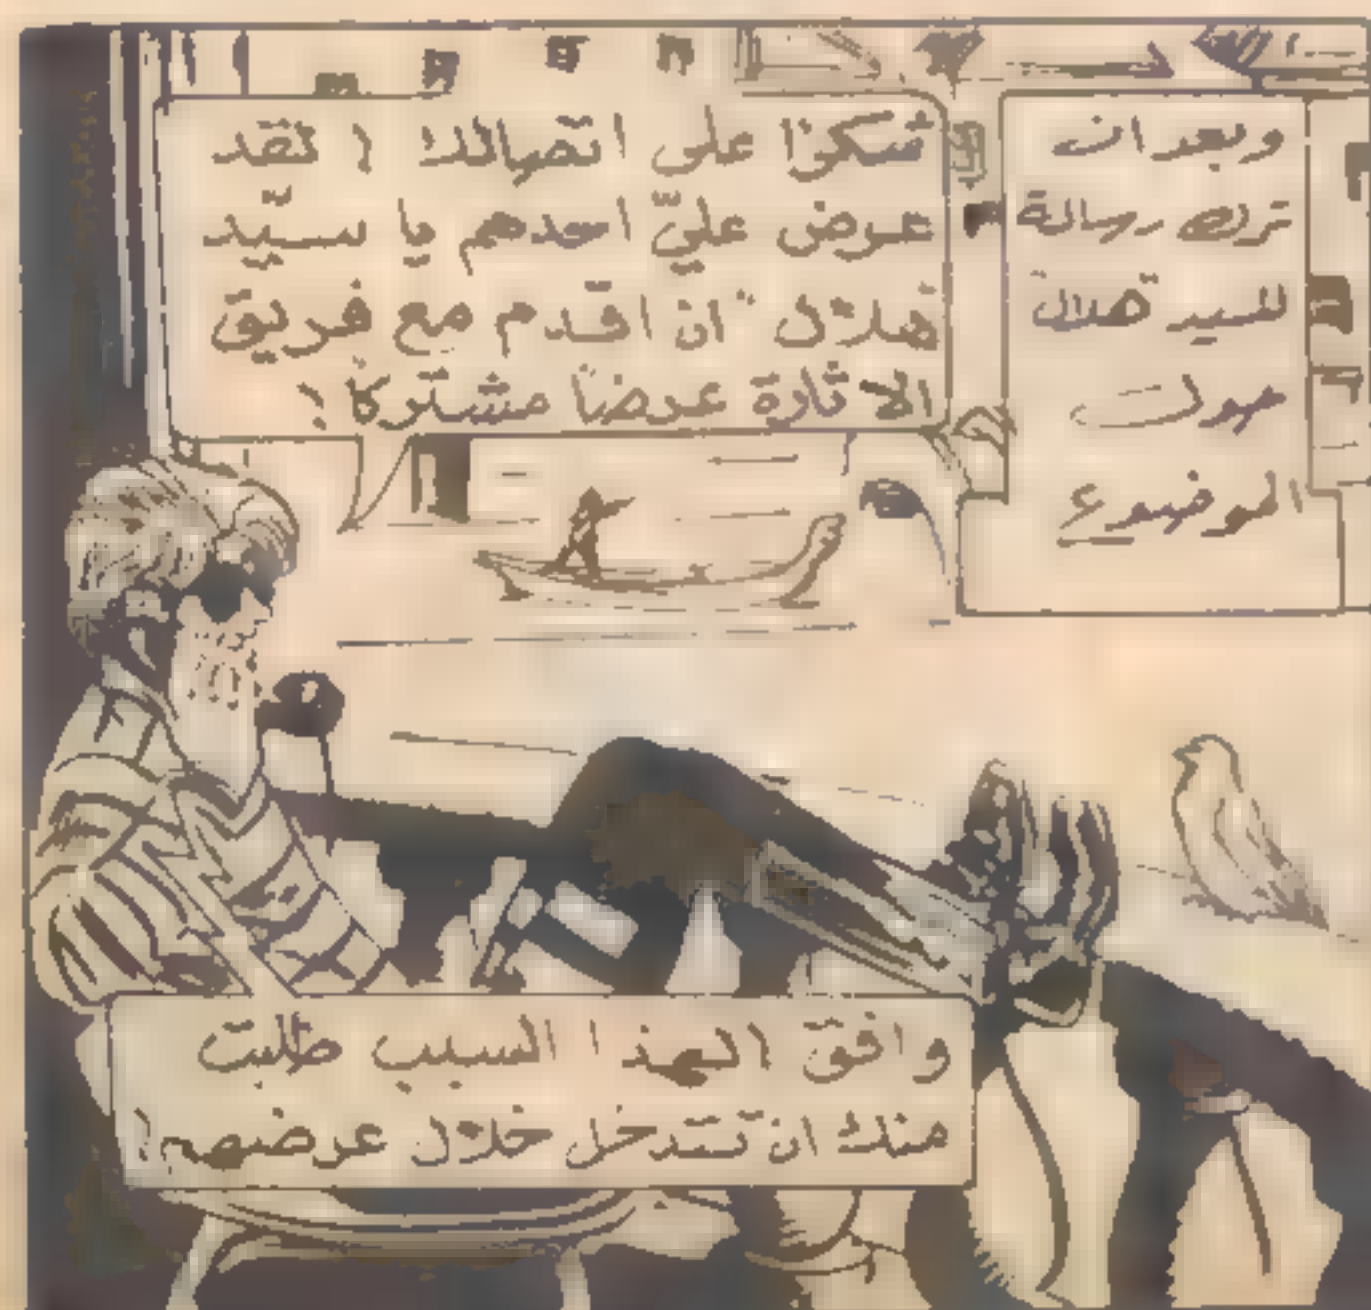 وبعد ان
ترك رسالة
للسيد هلال
حول
الموضوع
شكرًا على اتصالك ! لقد
عرض عليّ احدهم يا سيّد
هلال ان اقدم مع فريق
الاثارة عرضاً مشتركاً !
وافق ! لهذا السبب طلبت
منك ان تتدخل خلال عرضهم !